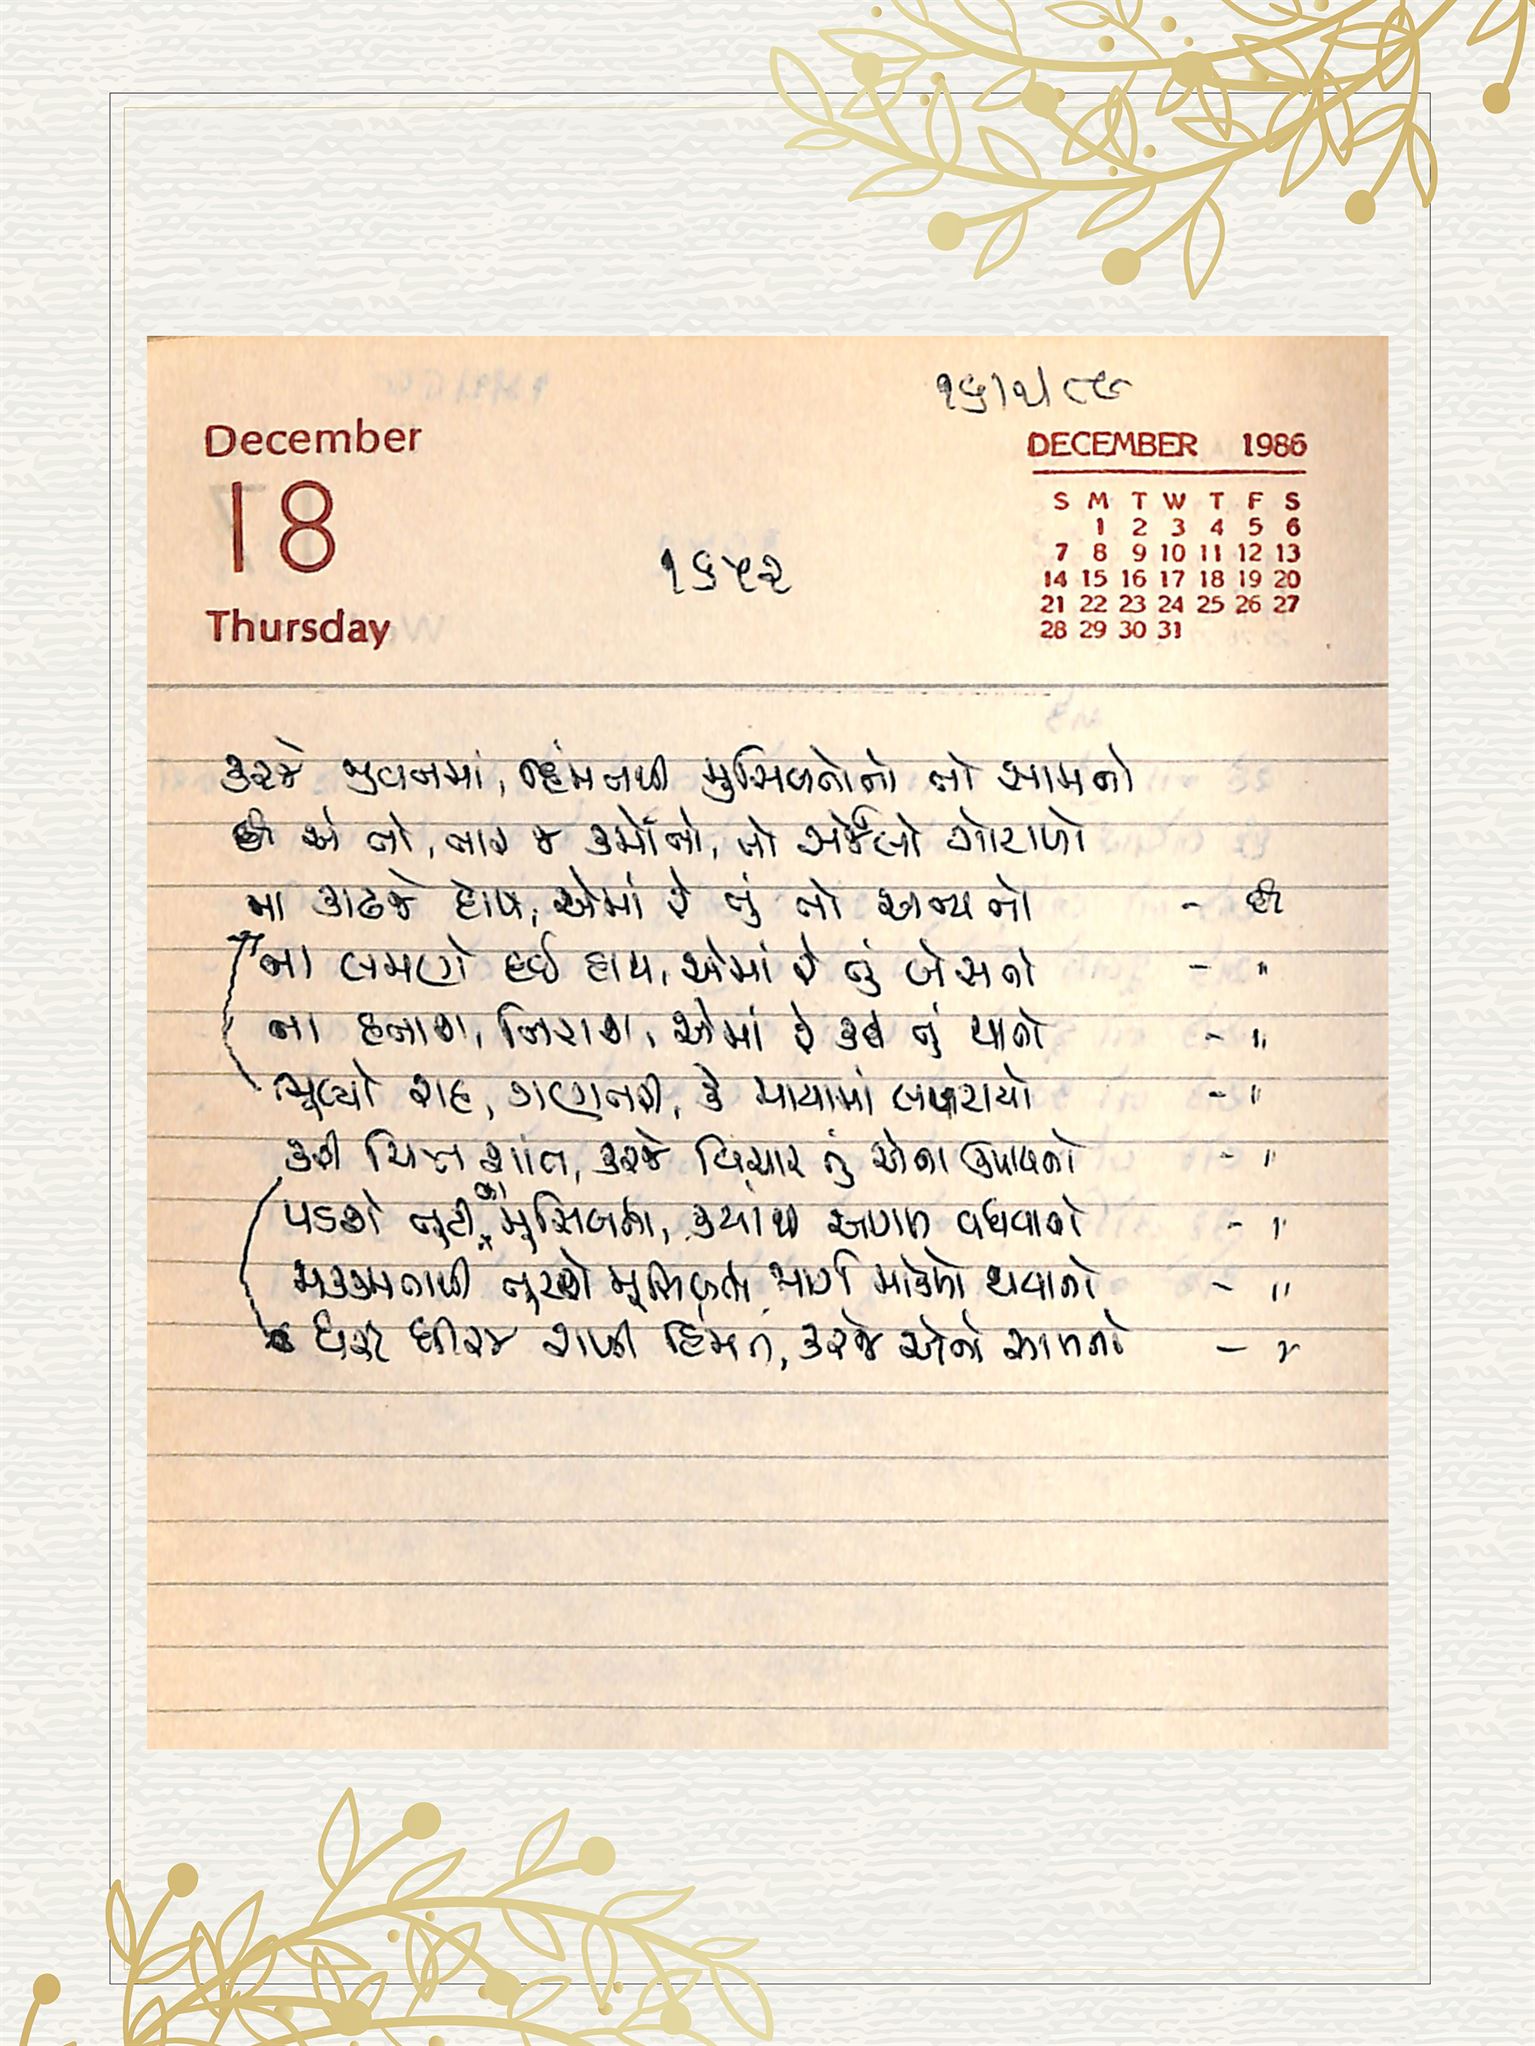 ૧૬/૫/૮૯
December
18
Thursday
DECEMBER 1986
S M T W T F S
1 2 3 4 5 6
7 8 9 10 11 12 13
14 15 16 17 18 19 20
21 22 23 24 25 26 27
28 29 30 31
૧૮૫૨
કરજે જીવનમાં, હિંમતથી મુસિબતોનો તો સામનો
છે એ તો, તારા જ કર્મોનો, તો સર્જેલો ગોટાળો
ના કાઢજે દોષ, એમાં રે તું તો અન્યનો - છે
ના લમણે દઈ હાથ, એમાં રે તું બેસતો - "
ના હતાશ, નિરાશ, એમાં રે કદી તું થાતો - "
ભૂલ્યો રાહ, ગણતરી, કે માયામાં લપટાયો - "
કરી ચિત્ત શાંત, કરજે વિચાર તું એના ઉપાયનો - "
પડશે તૂટી જો મુસિબતો, ક્યાંથી આગળ વધવાનો - "
મક્કમતાથી તૂટશે મુસિબતો માર્ગ મોકળો થવાનો - "
ધરી ધીરજ રાખી હિંમત, કરજે એનો સામનો - "